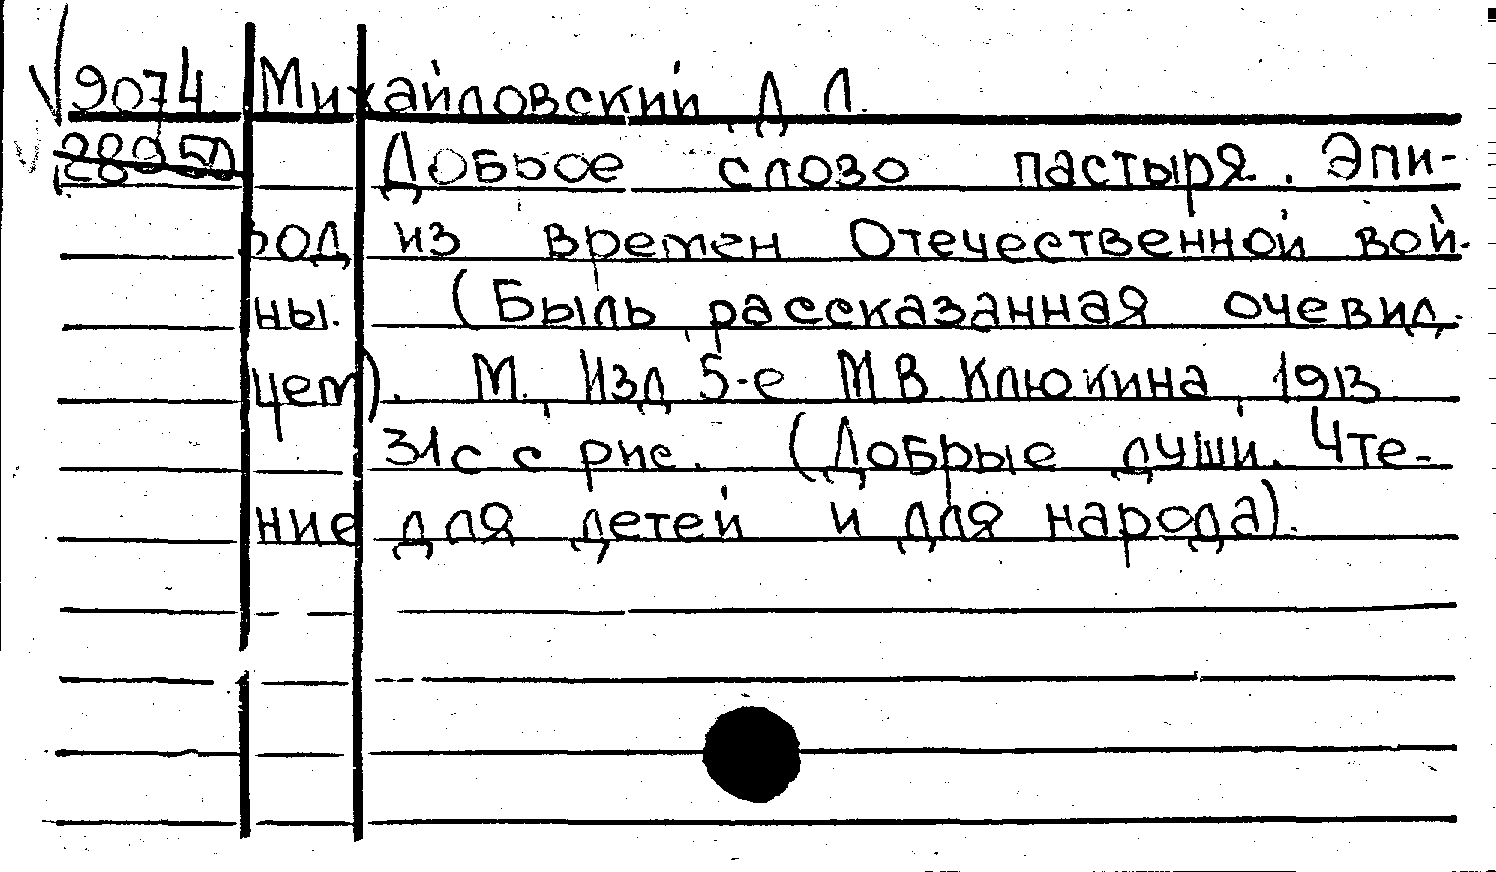 9074 Михайловский Д Л.
28950 Доброе слово пастыря. Эпи-
зод из времен Отечественной вой-
ны. (Быль рассказанная очевид-
цем). М., Изд 5-е М В Клюкина, 1913
31с с рис. (Добрые души. Чте-
ние для детей и для народа).